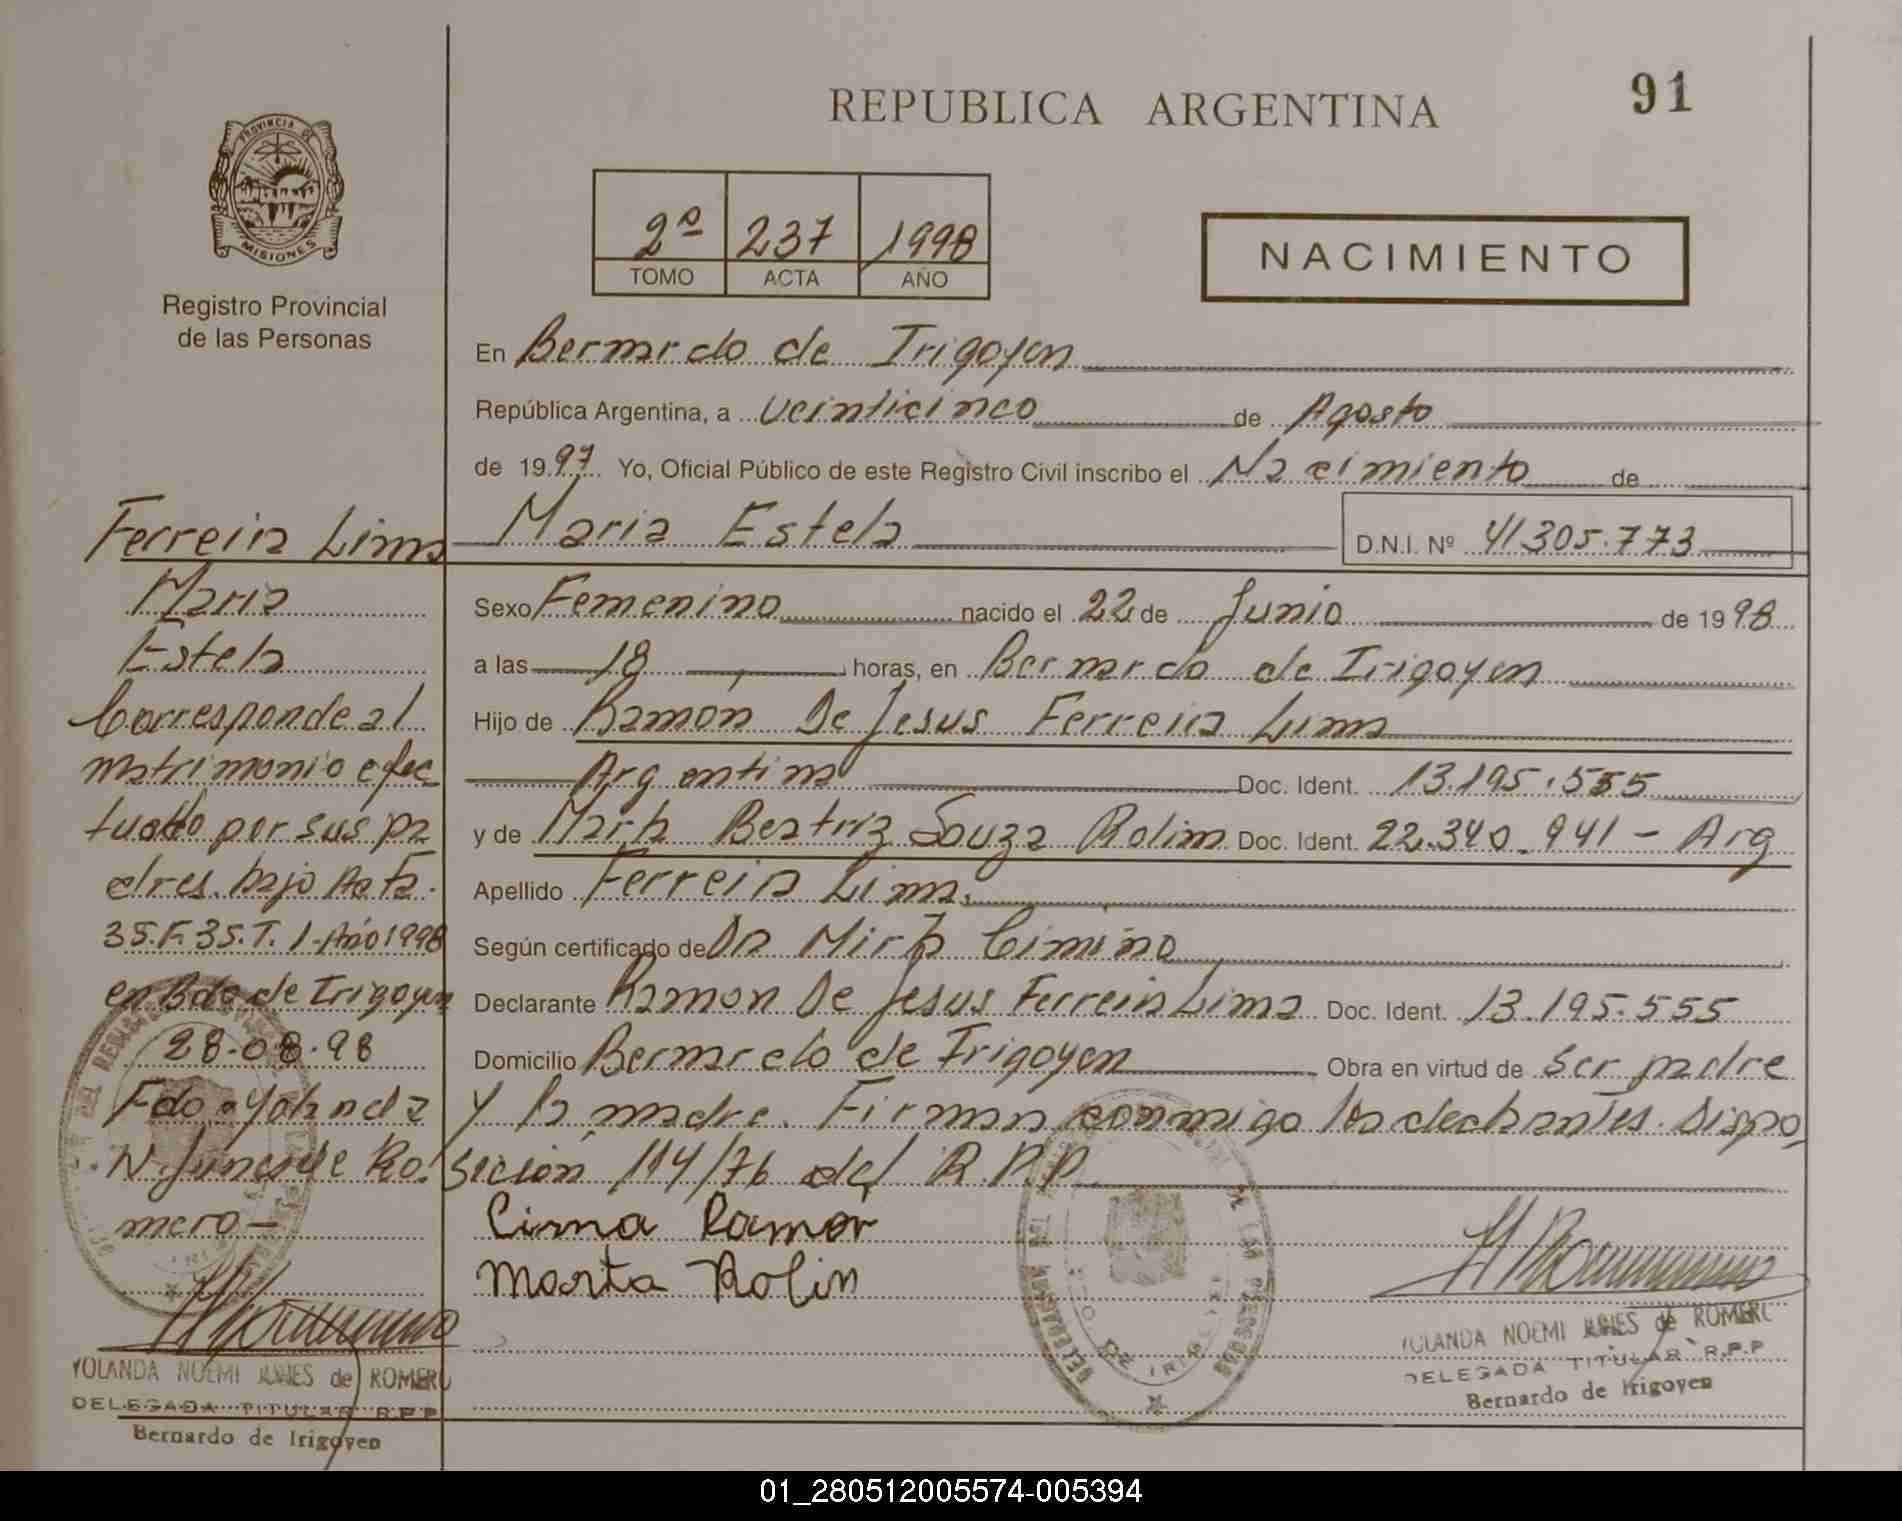 91
REPUBLICA ARGENTINA
PROVINCIA DE
MISIONES
Registro Provincial
de las Personas
2º 237 1998
TOMO ACTA AÑO
NACIMIENTO
En Bernardo de Irigoyen
República Argentina, a veinticinco de Agosto
de 1997 Yo, Oficial Público de este Registro Civil inscribo el Nacimiento de
Maria Estela D.N.I. Nº 41305.773
Sexo Femenino nacido el 22 de Junio de 1998
a las 18 horas, en Bernardo de Irigoyen
Hijo de Ramón De Jesus Ferreira Lima
Argentina Doc. Ident. 13.195.555
y de Marta Beatriz Souza Rolim Doc. Ident. 22.340.941 - Arg
Apellido Ferreira Lima.
Según certificado de Dra Mirta Cimino
Declarante Ramon De Jesus Ferreira Lima Doc. Ident. 13.195.555
Domicilio Bernardo de Irigoyen Obra en virtud de ser padre
y la madre. Firman conmigo los declarantes. Dispo
sición 114/76 del R.P.P.
Lima Ramon
Marta Rolin
YOLANDA NOEMI JUNES de ROMERO
DELEGADA TITULAR R.P.P
Bernardo de Irigoyen
Ferreira Lima
Maria
Estela
Corresponde al
matrimonio efec
tuado por sus pa
dres. bajo Acta.
35.F.35.T.1-Año 1998
en Bdo de Irigoyen
28.08.98
Fdo. Yolanda
N. Junes de Ro
mero -
YOLANDA NOEMI JUNES de ROMERO
DELEGADA TITULAR R.P.P
Bernardo de Irigoyen
01_280512005574-005394